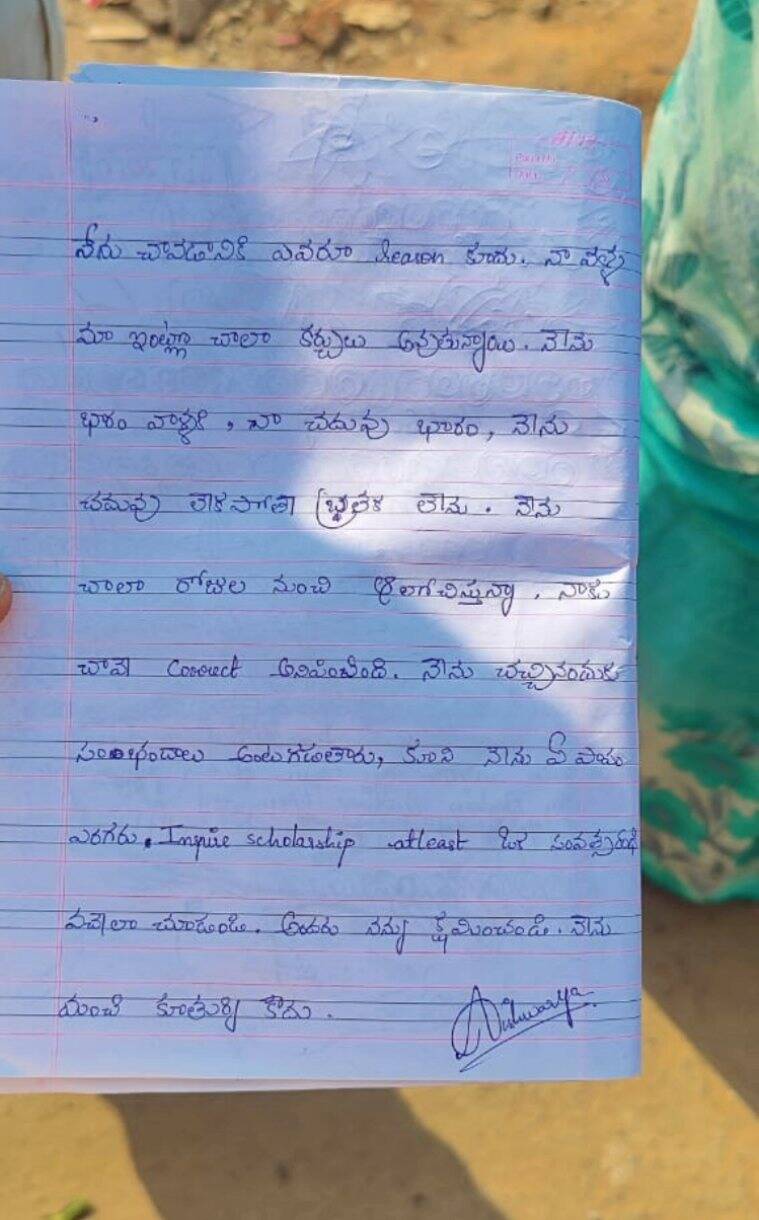 నేను చావడానికి ఎవరూ reason కాదు. నా వల్ల
మా ఇంట్లో చాలా ఖర్చులు అవుతున్నాయి. నేను
భారం వాళ్ళకి, నా చదువు భారం, నేను
చదువు లేకపోతే బ్రతక లేను. నేను
చాలా రోజుల నుంచి ఆలోచిస్తున్నా. నాకు
చావే Correct అనిపించింది. నేను చచ్చినందుకు
అంటగడతారు, కానీ నేను ఏ పాపం
ఎరగను. Inspire scholarship atleast ఒక
వచ్చేలా చూడండి. అందరు నన్ను క్షమించండి. నేను
మంచి కూతుర్ని కాదు.
Aishwarya